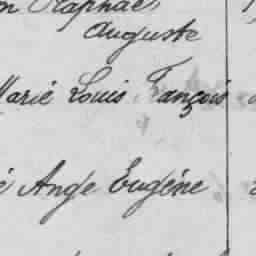 n Raphaël
Auguste
Marie Louis François
é Ange Eugéne